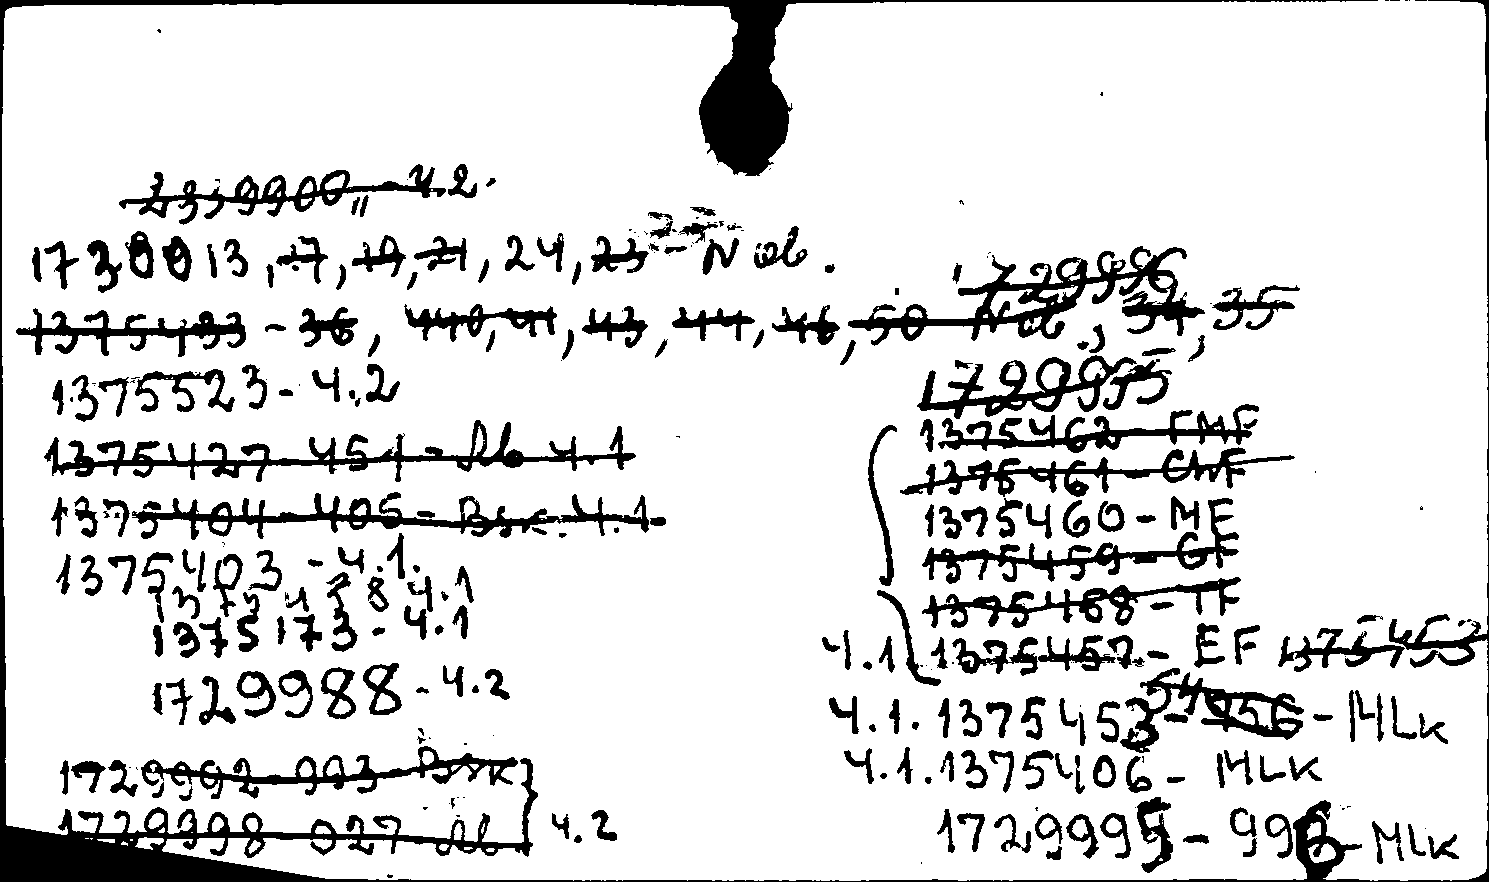 2339900„ - ч.2.
1730013, 17, 19, 21, 24, 23 - Nob.
1375433 - 36, 440, 41, 43, 44, 46, 50 Nob., 34, 35
1375523 - ч.2
1375427 - 451 - Ab ч.1
1375404 - 405 - Bsk. ч.1
1375403 - ч.1.
1375458 ч.1
1375173 - ч.1
1729988 - ч.2
1729992 - 993 - Bsk
1729998 - 027 - Ab. ч.2
1729996
1729995
1375462 - FMF
1375461 - CMF
1375460 - MF
1375459 - GF
1375458 - TF
ч.1. 1375457 - EF 1375453
ч.1. 1375453 - 456 - MLk
54
ч.1. 1375406 - MLK
1729995 - 996 - MLK